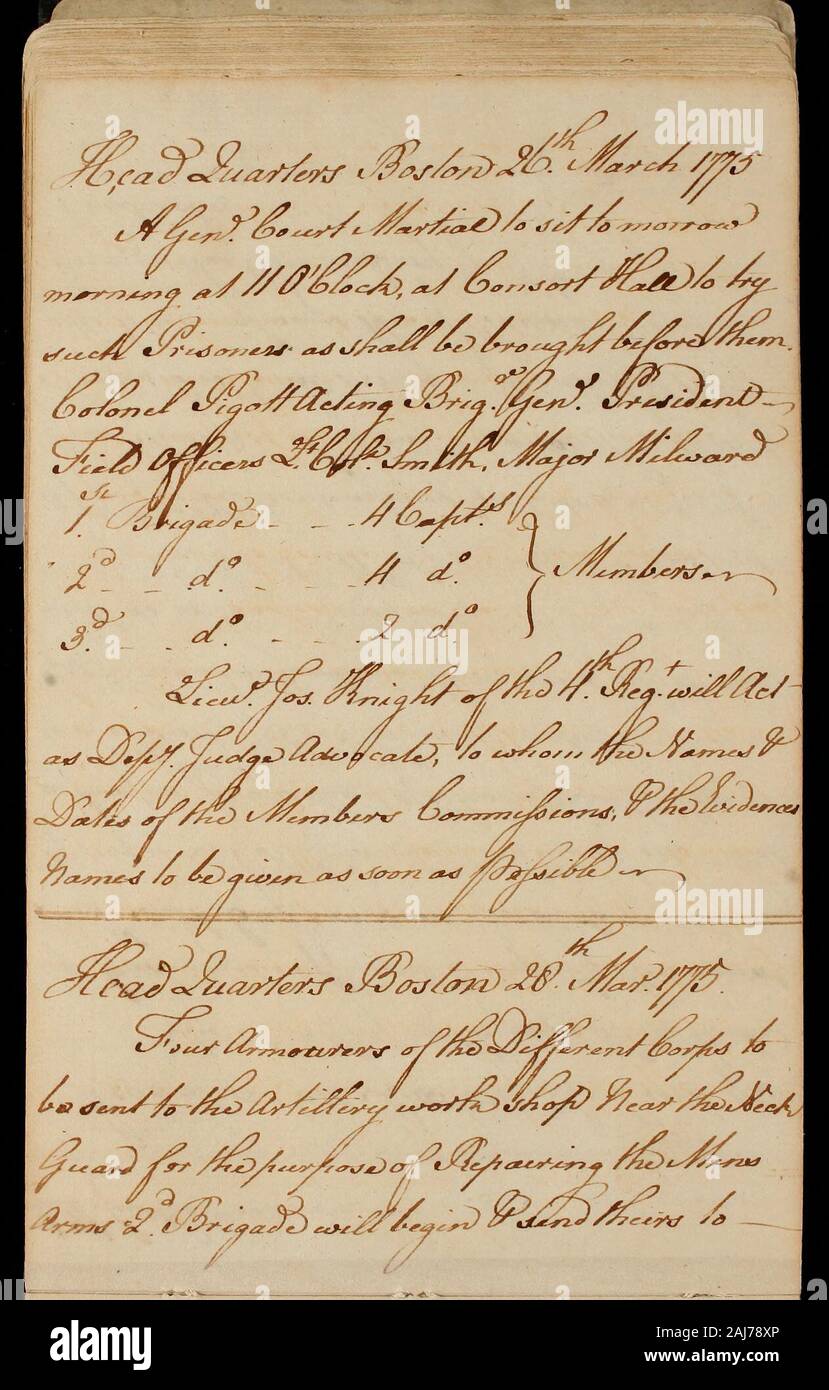 Head Quarters Boston 26.th March 1775
A Gen.l Court Martial to sit to morrow
morning at 11 O'Clock, at Consort Hall to try
such Prisoners as shall be brought before them.
Colonel Pigott Acting Brig.r Gen.l President
Field Officers Lt. Col. Smith, Major Milward
1.st Brigade - - 4 Capt.s
2.d - - d.o - - 4 d.o } Members
3.d - - d.o - - 2 d.o
Lieu.t Jos. Knight of the 4.th Reg.t will Act
as Dep.y Judge Advocate, to whom the Names &
Dates of the Members Commissions, & the Evidences
Names to be given as soon as possible
Head Quarters Boston 28.th Mar. 1775.
Four Armourers of the Different Corps to
be sent to the Artillery work shop Near the Neck
Guard for the purpose of Repaering the Mens
Arms 2.d Brigade will begin & send theirs to —
alamy
Image ID: 2AJ78XP
www.alamy.com